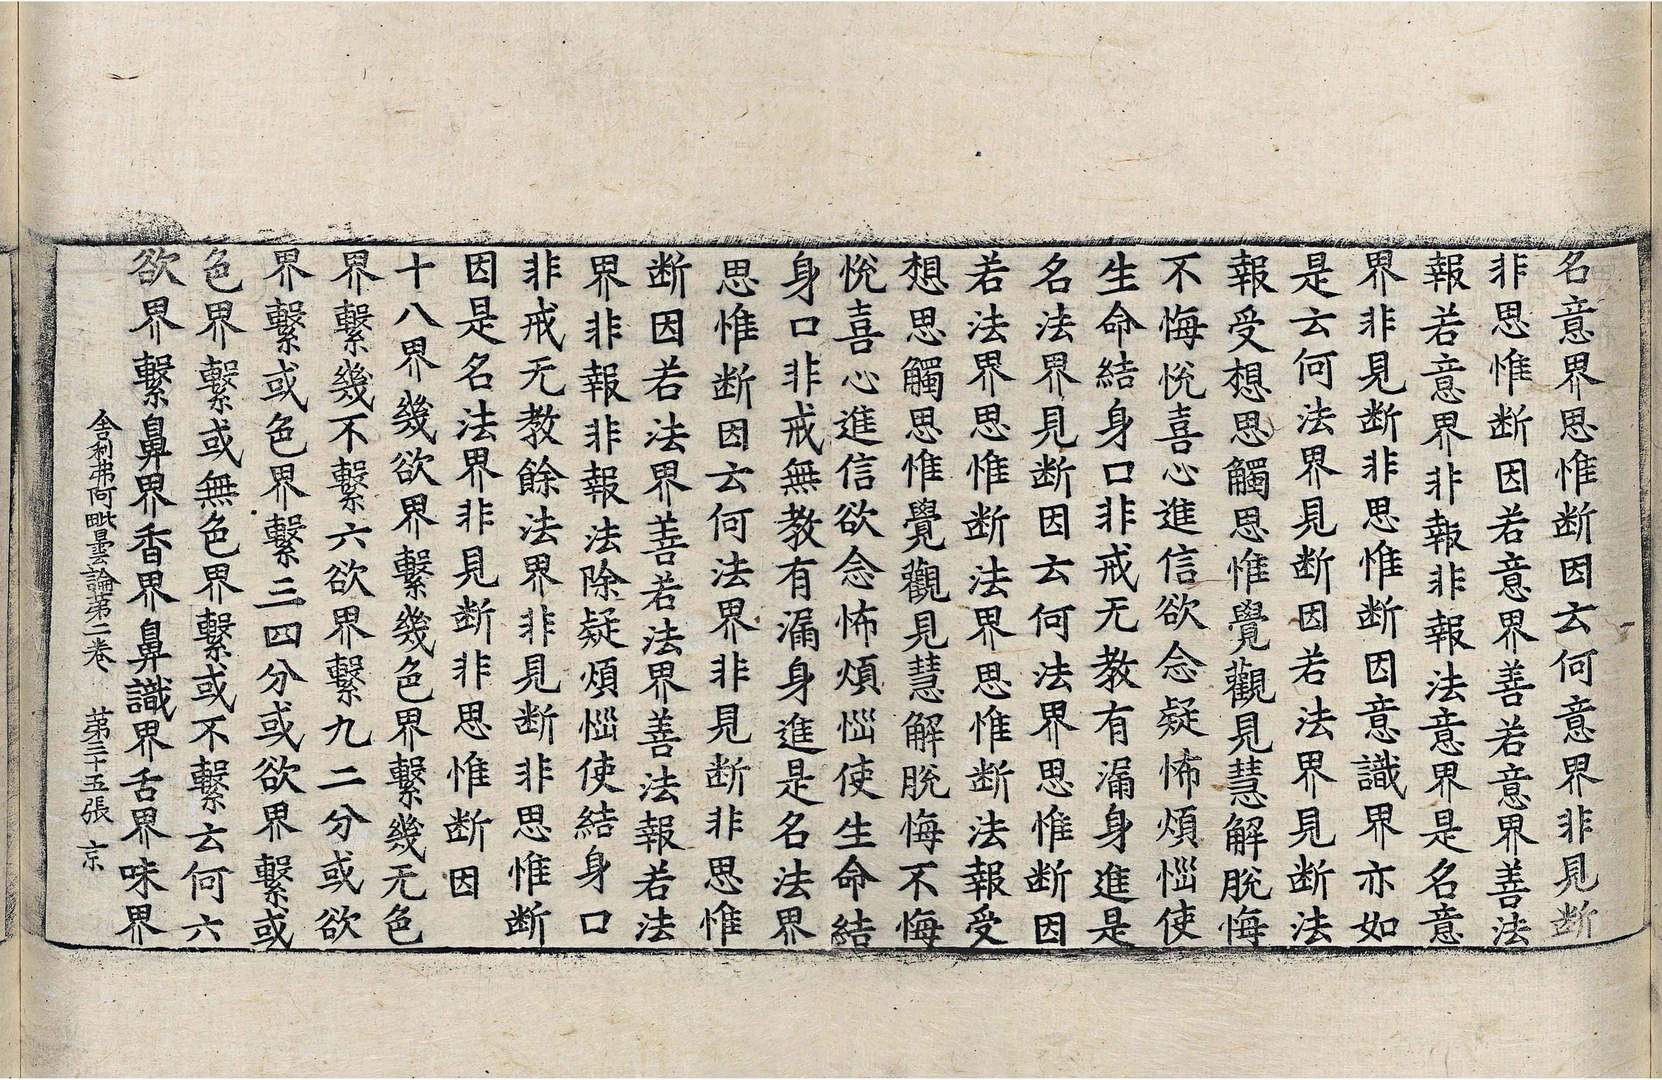 名意界思惟断因云何意界非見断
非思惟断因若意界善若意界善法
報若意界非報非報法意界是名意
界非見断非思惟断因意識界亦如
是云何法界見断因若法界見断法
報受想思觸思惟覺觀見慧解脫悔
不悔悅喜心進信欲念疑怖煩惱使
生命結身口非戒无教有漏身進是
名法界見断因云何法界思惟断因
若法界思惟断法界思惟断法報受
想思觸思惟覺觀見慧解脫悔不悔
悅喜心進信欲念怖煩惱使生命結
身口非戒無教有漏身進是名法界
思惟断因云何法界非見断非思惟
断因若法界善若法界善法報若法
界非報非報法除疑煩惱使結身口
非戒无教餘法界非見断非思惟断
因是名法界非見断非思惟断因
十八界幾欲界繫幾色界繫幾无色
界繫幾不繫六欲界繫九二分或欲
界繫或色界繫三四分或欲界繫或
色界繫或無色界繫或不繫云何六
欲界繫鼻界香界鼻識界舌界味界
舍利弗阿毗曇論第二卷 第三十五張 京